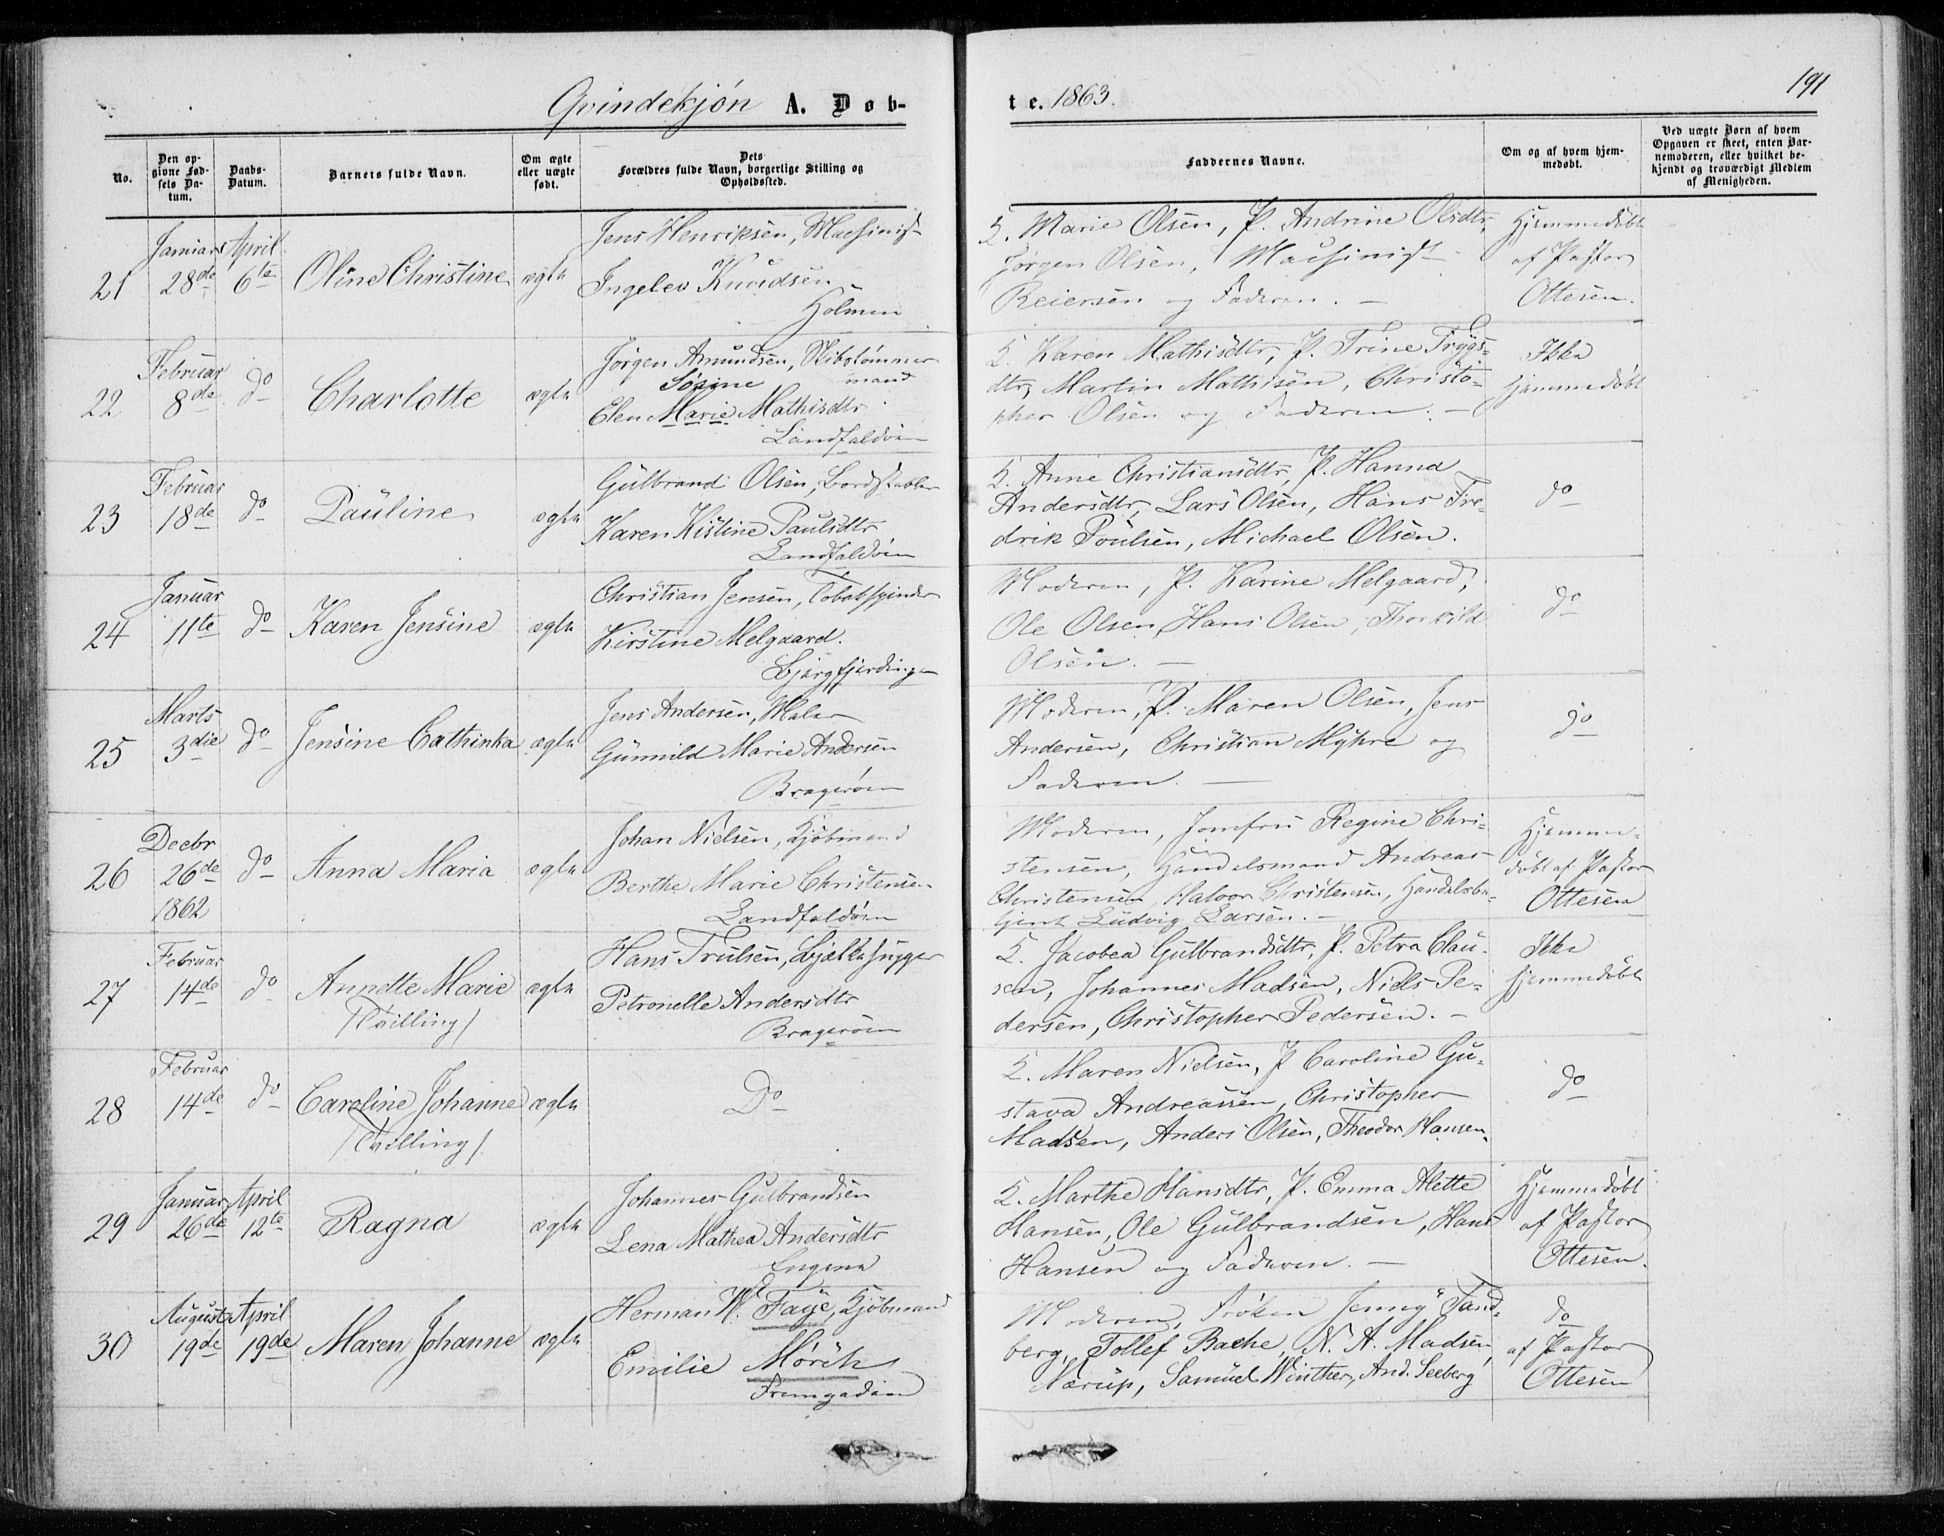 Qvindekjøn A. Døb-
te. 1863.
191
No.
Den opgivne Fødsels Datum.
Daabs-Datum.
Barnets fulde Navn.
Om ægte eller uægte født.
Dets Forældres fulde Navn, borgerlige Stilling og Opholdssted.
Faddernes Navne.
Om og af hvem hjemmedøbt.
Ved uægte Børn af hvem Opgaven er skeet, enten Barnemoderen, eller hvilket bekjendt og troværdigt Medlem af Menigheden.
21
Januar
28de
April
6te
Oline Christine
ægte
Jens Henriksen, Maskinist
Ingelev Knudsen
Holmen
K. Marie Olsen, P. Andrine Olsdtr,
Jørgen Olsen, Maskinist
Reiersen og Faderen. —
Hjemmedøbt
af Pastor
Ottesen.
22
Februar
8de
do
Charlotte
ægte
Jørgen Amundsen, Skibstømmer
mand
Sørine
Elen Marie Mathisdtr
Landfaldøen
K. Karen Mathisdtr, P. Trine Trygs-
dtr, Martin Mathisen, Christo-
pher Olsen og Faderen. —
Ikke
hjemmedøbt
23
Februar
18de
do
Pauline
ægte
Gulbrand Olsen, Bordstabler
Karen Kistine Paulsdtr
Landfaldøen
K. Anne Christiansdtr, P. Hanna
Andersdtr, Lars Olsen, Hans Fre-
drik Poulsen, Michael Olsen.
do
24
Januar
11te
do
Karen Jensine
ægte
Christian Jensen, Tobakspinder
Kirstine Melgaard.
Bjergfjerdingen
Moderen, P. Karine Melgaard,
Ole Olsen, Hans Olsen, Thorkild
Olsen. —
do
25
Marts
3die
do
Jensine Cathinka
ægte
Jens Andersen, Maler
Gunnild Marie Andersen
Bragerøen
Moderen, P. Maren Olsen, Jens
Andersen, Christian Myhre og
Faderen. —
do
26
Decbr
26de
1862
do
Anna Maria
ægte
Johan Nielsen, Kjøbmand
Berthe Marie Christensen
Landfaldøen
Moderen, Jomfru Regine Chri-
stensen, Handelsmand Andreas
Christensen, Halvor Christensen, Handelsbe-
tjent Ludvig Larsen. —
Hjemme-
døbt af Pastor
Ottesen
27
Februar
14de
do
Annette Marie
/Tvilling/
ægte
Hans Trulsen, Bjælkehugger
Petronelle Andersdtr
Bragerøen
K. Jacobea Gulbrandsdtr, P. Petra Clau-
sen, Johannes Madsen, Niels Pe-
dersen, Christopher Pedersen. —
Ikke
hjemmedøbt
28
Februar
14de
do
Caroline Johanne
/Tvilling/
ægte
Do
K. Maren Nielsen, P Caroline Gu-
stava Andreassen, Christopher
Madsen, Anders Olsen, Theodor Hansen.
do
29
Januar
26de
April
12te
Ragna
ægte
Johannes Gulbrandsen
Lena Mathea Andersdtr
Engene
K. Marthe Hansdtr, P. Emma Alette
Hansen, Ole Gulbrandsen, Hans
Hansen og Faderen. —
Hjemmedøbt
af Pastor
Ottesen.
30
August
19de
April
19de
Maren Johanne
ægte
Herman W. Faye, Kjøbmand
Emilie Mørch
Fremgaden
Moderen, Frøken Jenny Tand-
berg, Tollef Bache, N. A. Madsen,
Nærup, Samuel Winther, And. Seeberg
do
af Pastor
Ottesen